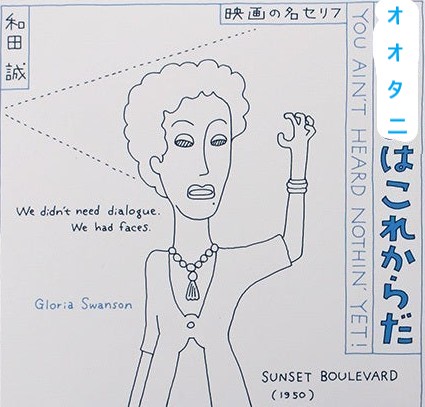 和田 誠
映画の名セリフ
オオタニはこれからだ
YOU AIN'T HEARD NOTHIN' YET!
We didn't need dialogue.
We had faces.
Gloria Swanson
SUNSET BOULEVARD
(1950)